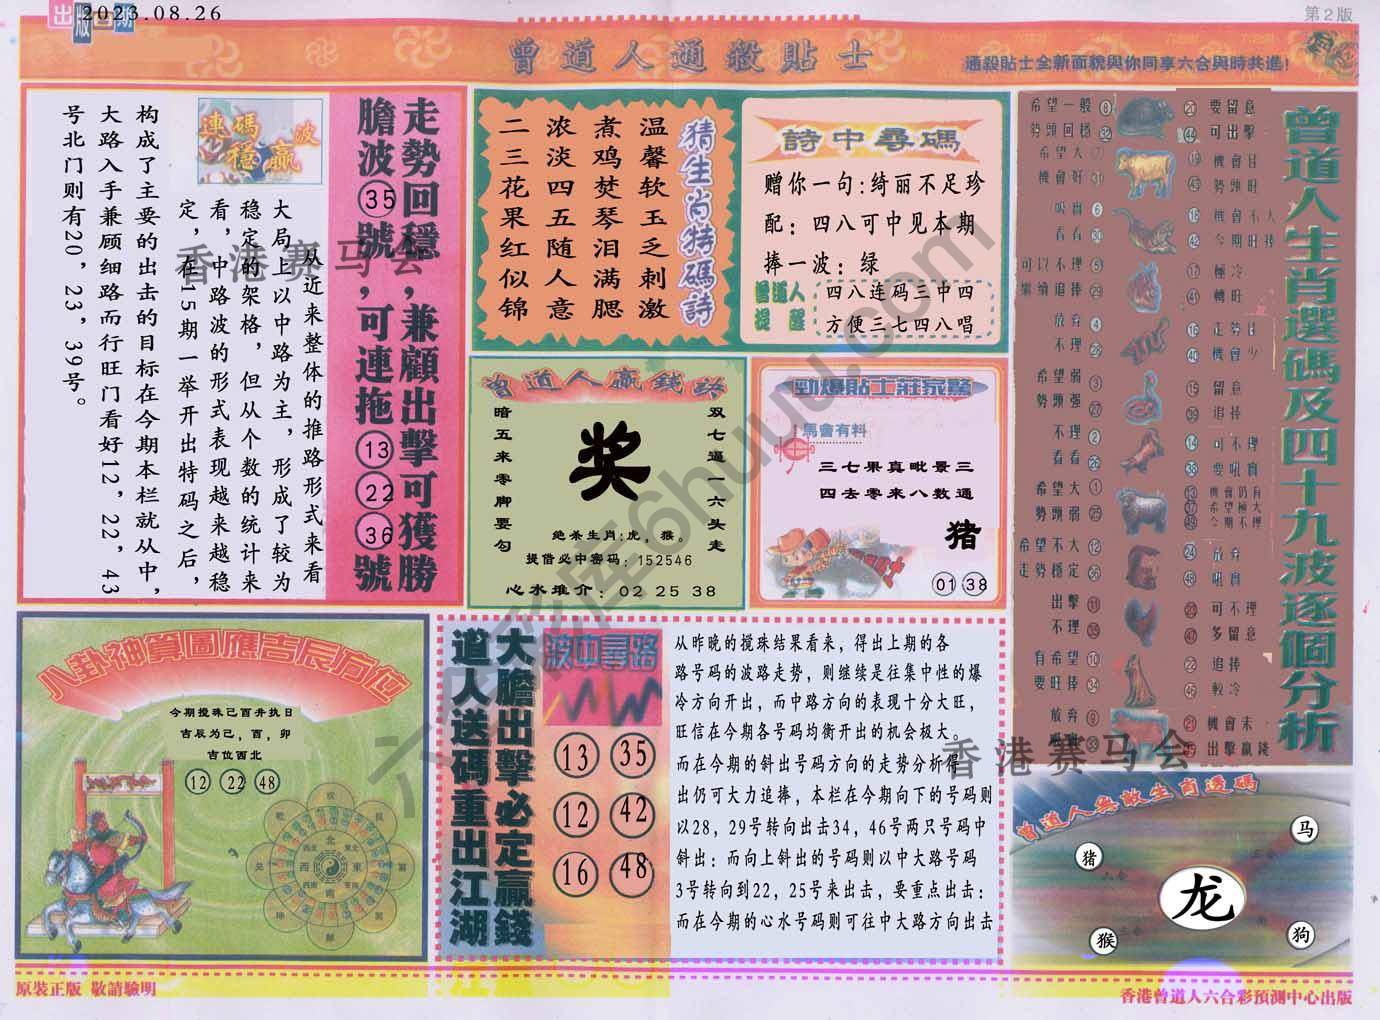 出版日期
2023.08.26
第2版
曾道人通殺貼士
通殺貼士全新面貌與你同享六合與時共進!
走勢回穩,兼顧出擊可獲勝
膽波35號,可連拖132236號
連碼波
穩贏
从近来整体的推路形式来看
大局上以中路为主,形成了较为
稳定的架格,但从个数的统计来
看,中路波的形式表现越来越稳
定,在15期一举开出特码之后,
构成了主要的出击的目标在今期本栏就从中,
大路入手兼顾细路而行旺门看好12,22,43
号北门则有20,23,39号。
猜生肖特碼詩
温馨软玉乏刺激
煮鸡焚琴泪满腮
浓淡四五随人意
二三花果红似锦
詩中尋碼
赠你一句:绮丽不足珍
配:四八可中见本期
捧一波:绿
曾道人
提醒
四八连码三中四
方便三七四八唱
曾道人贏錢訣
双七逼一六头走
奖
暗五来零脚要勾
绝杀生肖:虎,猴。
提借必中密码:152546
心水推介:02 25 38
勁爆貼士莊家驚
馬會有料
三七果真毗景三
四去零来八数通
猪
01 38
曾道人生肖選碼及四十九波逐個分析
希望一般
勢頭回穩
要留意
可出擊
希望大
機會好
勢頭旺
吸實 6
看看 30
機會不大
42 今期旺捧
可以不理 5
繼續追捧 29
17 極冷
41 轉旺
放弃 4
不理
40 機會少
希望弱 3
勢頭强 27
15 留意
39 追捧
不理 2
看看 26
14 可不理
38 要吼實
希望大 1
勢頭弱 25
13 機會仍有
37 希望極大
49 今期不理
希望不大 12
走勢穩定
24 放弃
48 吼實
出擊
不理
可不理
多留意
有希望 10
要旺捧 34
22 追捧
46 較冷
放弃 9
33
21 機會未
出擊贏錢
八卦神算圖應吉辰方位
今期搅珠己酉井执日
吉辰为己,酉,卯
吉位西北
12 22 48
大膽出擊必定贏錢
道人送碼重出江湖
波中尋路
13 35
12 42
16 48
从昨晚的搅珠结果看来,得出上期的各
路号码的波路走势,则继续是往集中性的爆
冷方向开出,而中路方向的表现十分大旺,
旺信在今期各号码均衡开出的机会极大。
而在今期的斜出号码方向的走势分析得
出仍可大力追捧,本栏在今期向下的号码则
以28,29号转向出击34,46号两只号码中
斜出:而向上斜出的号码则以中大路号码
3号转向到22,25号来出击,要重点出击:
而在今期的心水号码则可往中大路方向出击
曾道人無敵生肖透碼
马
猪
龙
猴
狗
香港赛马会
香港赛马会
六合彩库6huuu.com
原裝正版 敬請驗明
香港曾道人六合彩預測中心出版